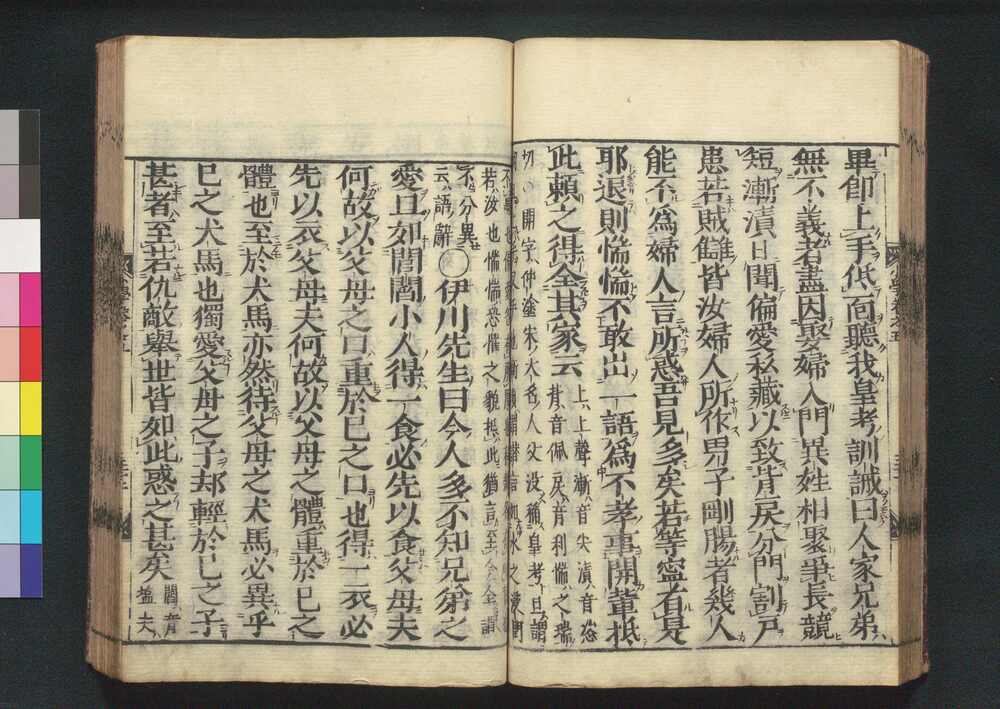 畢即上手低面聽我皇考訓誡曰人家兄弟
無不義者盡因娶婦入門異姓相聚爭長競
短漸漬日聞偏愛私藏以致背戾分門割戸
患若賊讎皆汝婦人所作男子剛腸者幾人
能不爲婦人言所惑吾見多矣若等寧有是
耶退則惴惴不敢出一語爲不孝事開輩抵
此賴之得全其家云
上上聲漸音尖漬音恣
背音佩戾音利惴之瑞
切○開字仲塗宋大名人父沒稱皇考旦謂
若汝也惴惴恐懼之貌抵此猶言至今全謂
不分異
云語辭○伊川先生曰今人多不知兄弟之
愛且如閭閻小人得一食必先以食父母夫
何故以父母之口重於己之口也得一衣必
先以衣父母夫何故以父母之體重於己之
體也至於犬馬亦然待父母之犬馬必異乎
己之犬馬也獨愛父母之子却輕於己之子
甚者至若仇敵舉世皆如此惑之甚矣
閻音
塩夫
小學卷之五